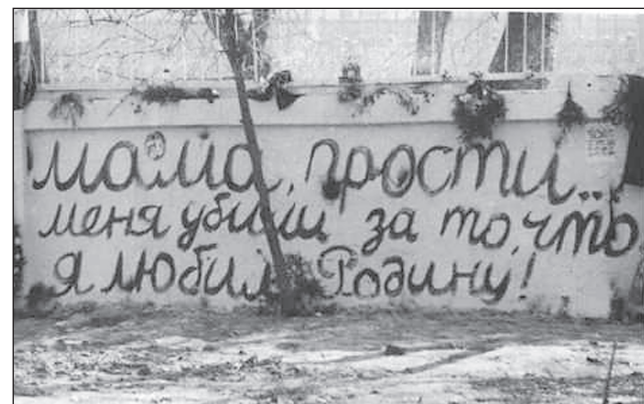 мама, прости...
меня убили за то, что
я любил Родину!